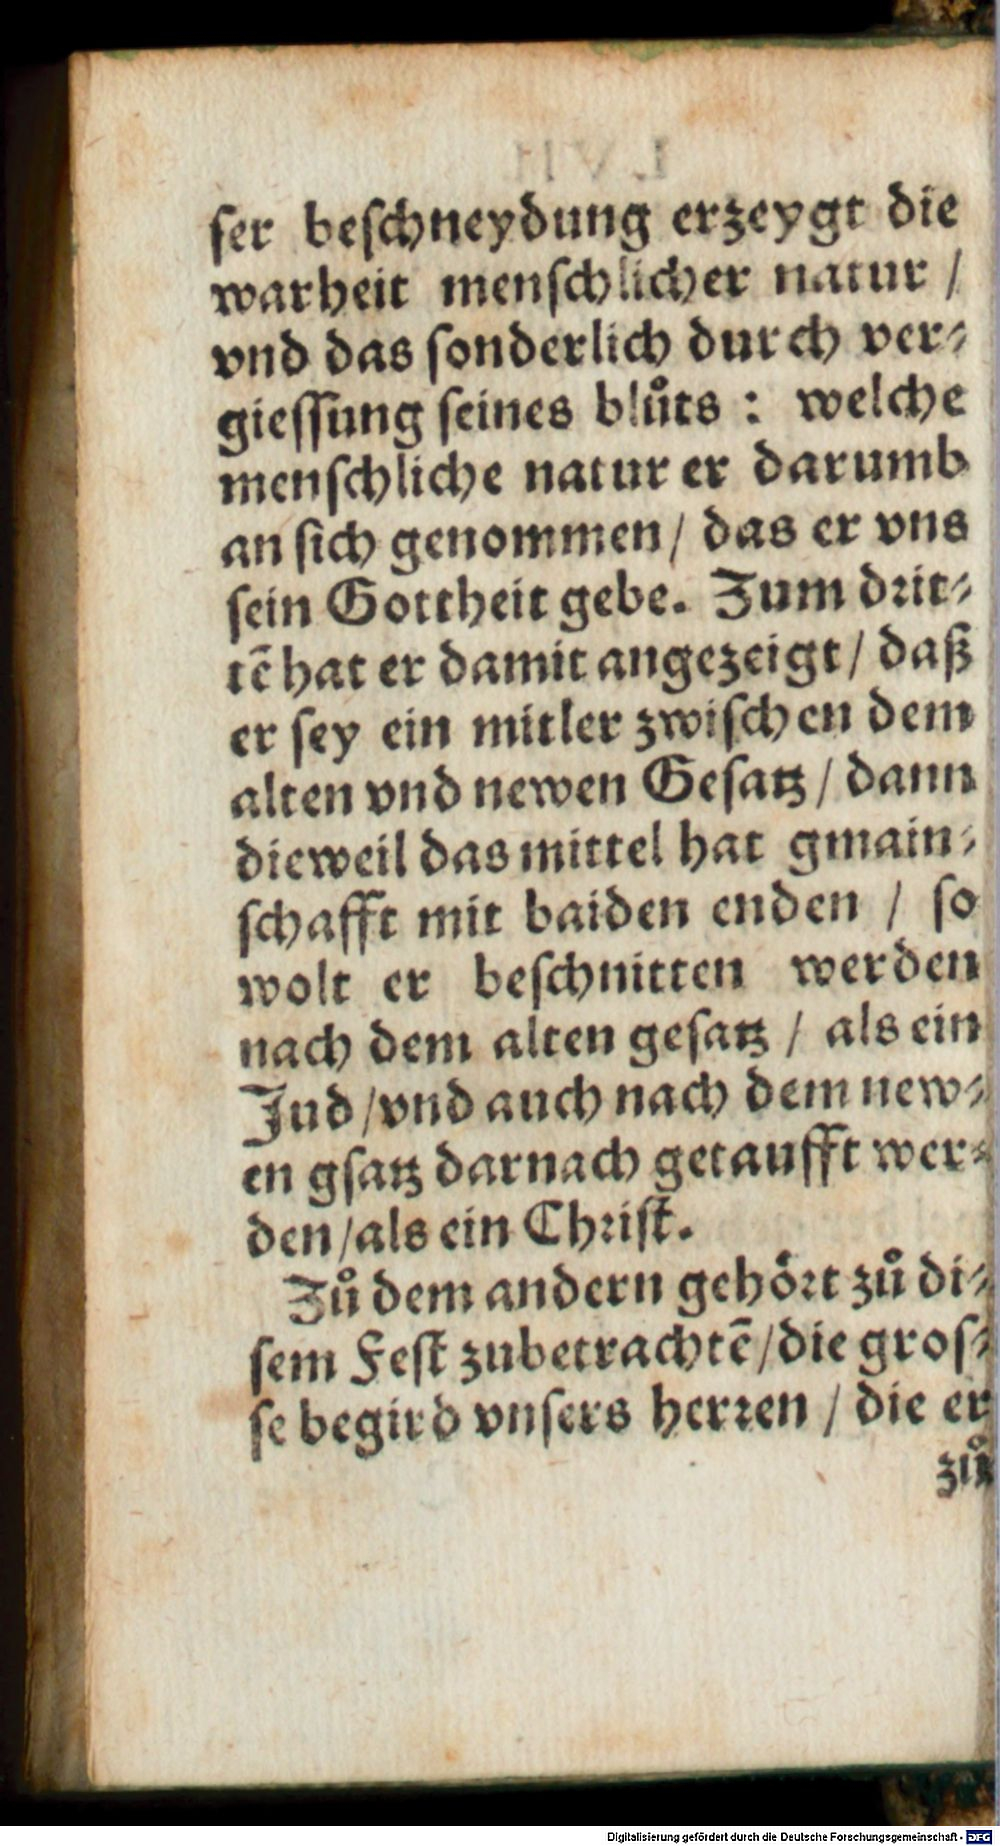 ſer beſchneydung erzeygt die
warheit menſchlicher natur /
vnd das ſonderlich durch ver⸗
gieſſung ſeines blůts : welche
menſchliche natur er darumb
an ſich genommen / das er vns
ſein Gottheit gebe. Zum drit⸗
tē hat er damit angezeigt / daß
er ſey ein mitler zwiſchen dem
alten vnd newen Geſatz / dann
dieweil das mittel hat gmain⸗
ſchafft mit baiden enden / ſo
wolt er beſchnitten werden
nach dem alten geſatz / als ein
Jud / vnd auch nach dem new⸗
en gſatz darnach getaufft wer⸗
den / als ein Chriſt.
Zů dem andern gehoͤrt zů di⸗
ſem Feſt zubetrachtē / die groſ⸗
ſe begird vnſers herren / die er
zů
Digitalisierung gefördert durch die Deutsche Forschungsgemeinschaft - DFG